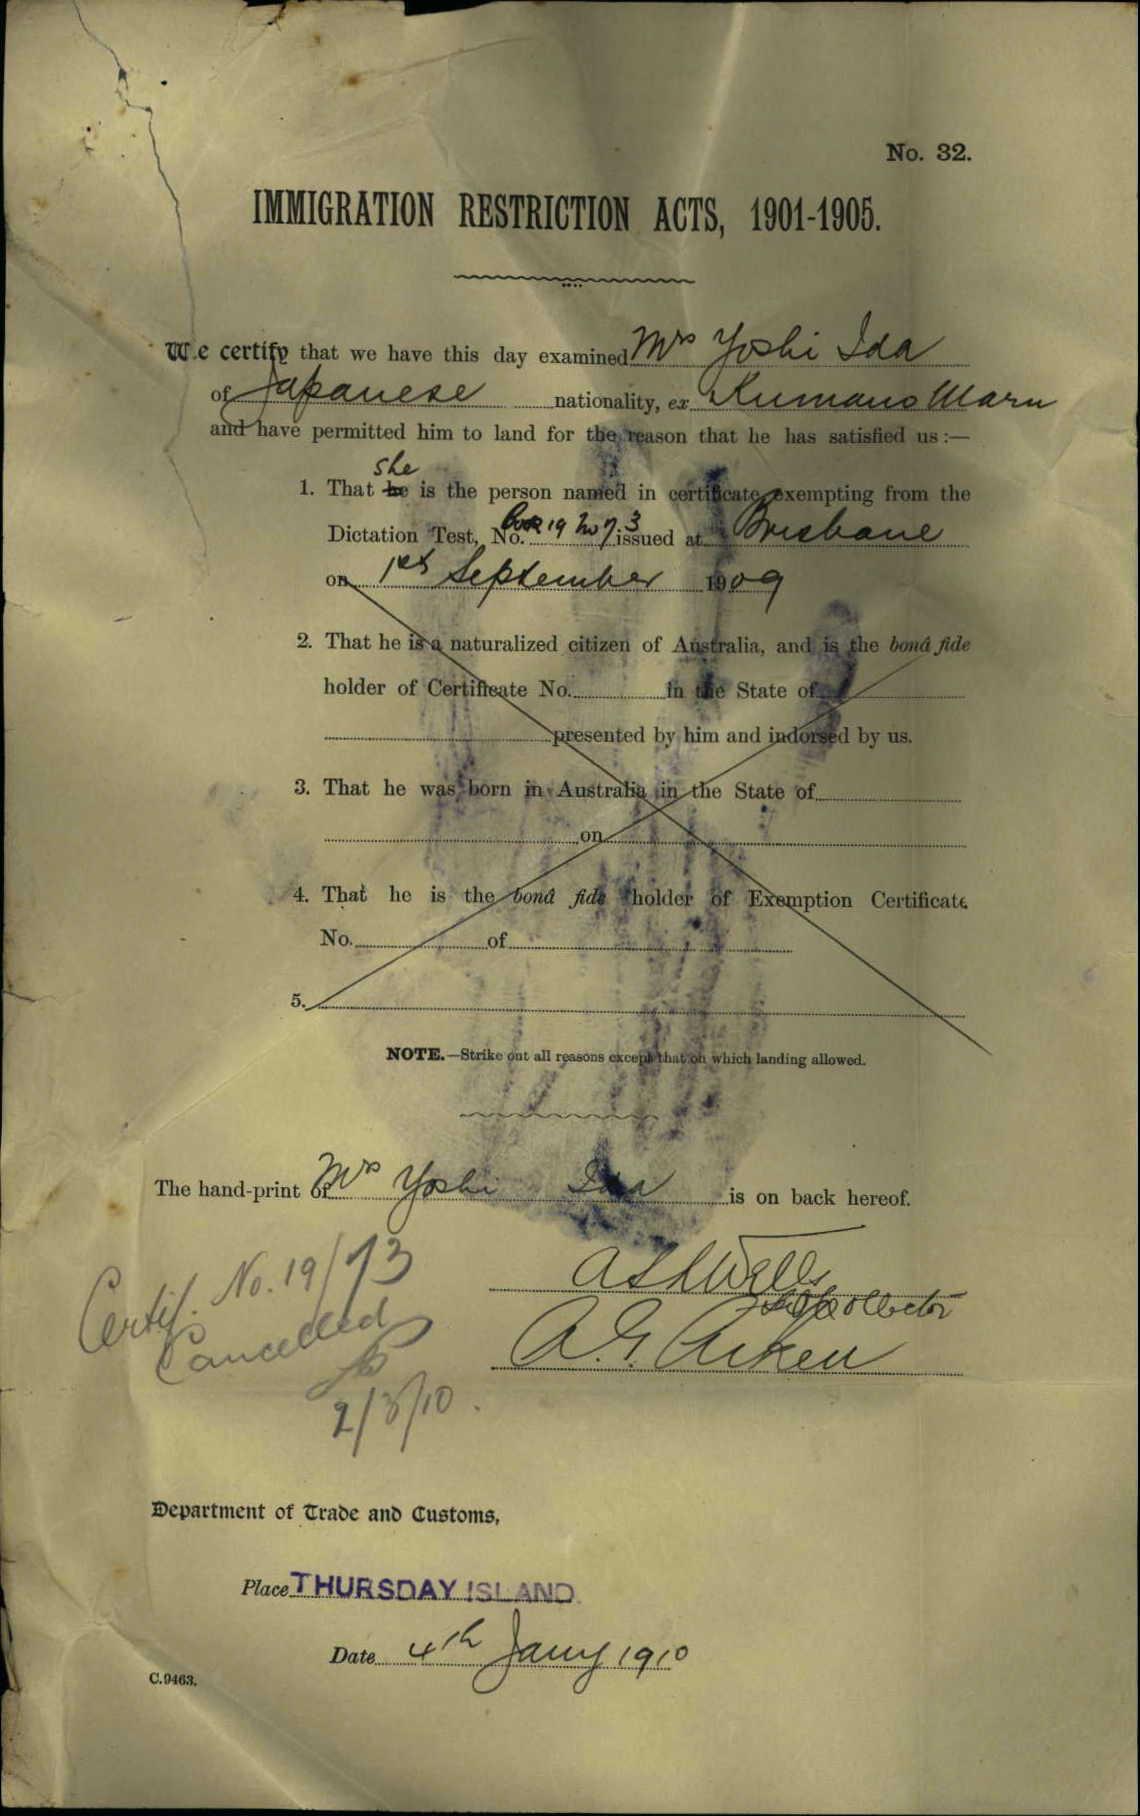 No. 32.
IMMIGRATION RESTRICTION ACTS, 1901-1905.
We certify that we have this day examined Mrs Yoshi Ida
of Japanese nationality, ex Kumano Maru
and have permitted him to land for the reason that he has satisfied us :—
she
1. That he is the person named in certificate exempting from the
Dictation Test, No. Book 19 No 73 issued at Brisbane
on 1st September 1909
2. That he is a naturalized citizen of Australia, and is the bonâ fide
holder of Certificate No. in the State of
presented by him and indorsed by us.
3. That he was born in Australia in the State of
on
4. That he is the bonâ fide holder of Exemption Certificate
No. of
5.
NOTE.—Strike out all reasons except that on which landing allowed.
The hand-print of Mrs Yoshi Ida is on back hereof.
Certif. No. 19/73
Cancelled
2/3/10.
Sub Collector
A. G. Aiken
Department of Trade and Customs,
Place THURSDAY ISLAND.
Date 4th Jany 1910
C.9463.